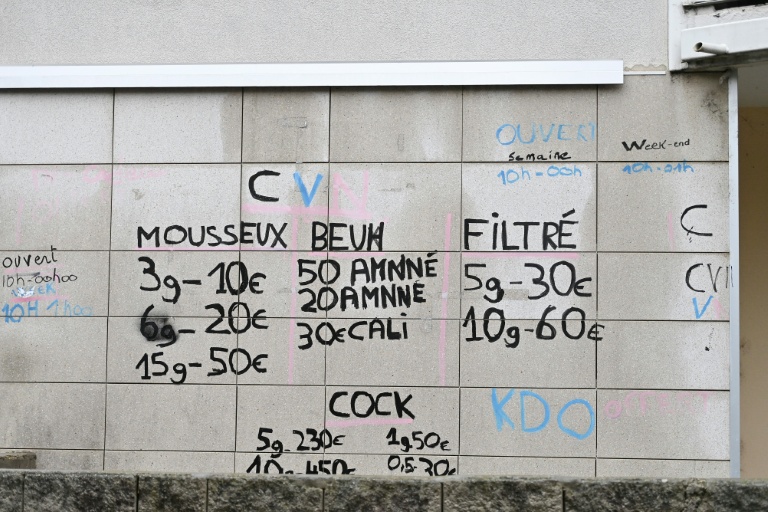 OUVERT
semaine
10h-00h
Week-end
10h-01h
C V
MOUSSEUX
3g-10€
6g-20€
15g-50€
BEUH
50 AMNNÉ
20 AMNNÉ
30€ CALI
FILTRÉ
5g-30€
10g-60€
ouvert
10h-00h00
WEEK
C
CVN
V
COCK
5g-230€
1g50€
10g-450€
0,5-30€
KDO
offert